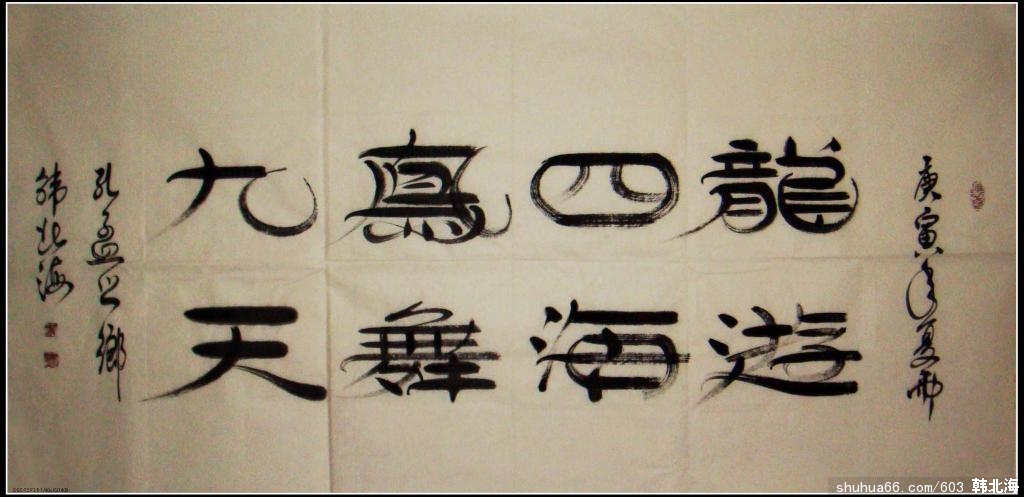 庚寅年夏
龍遊
四海
鳳舞
九天
孔孟之鄉
韩北海
shuhua66.com/603 韩北海